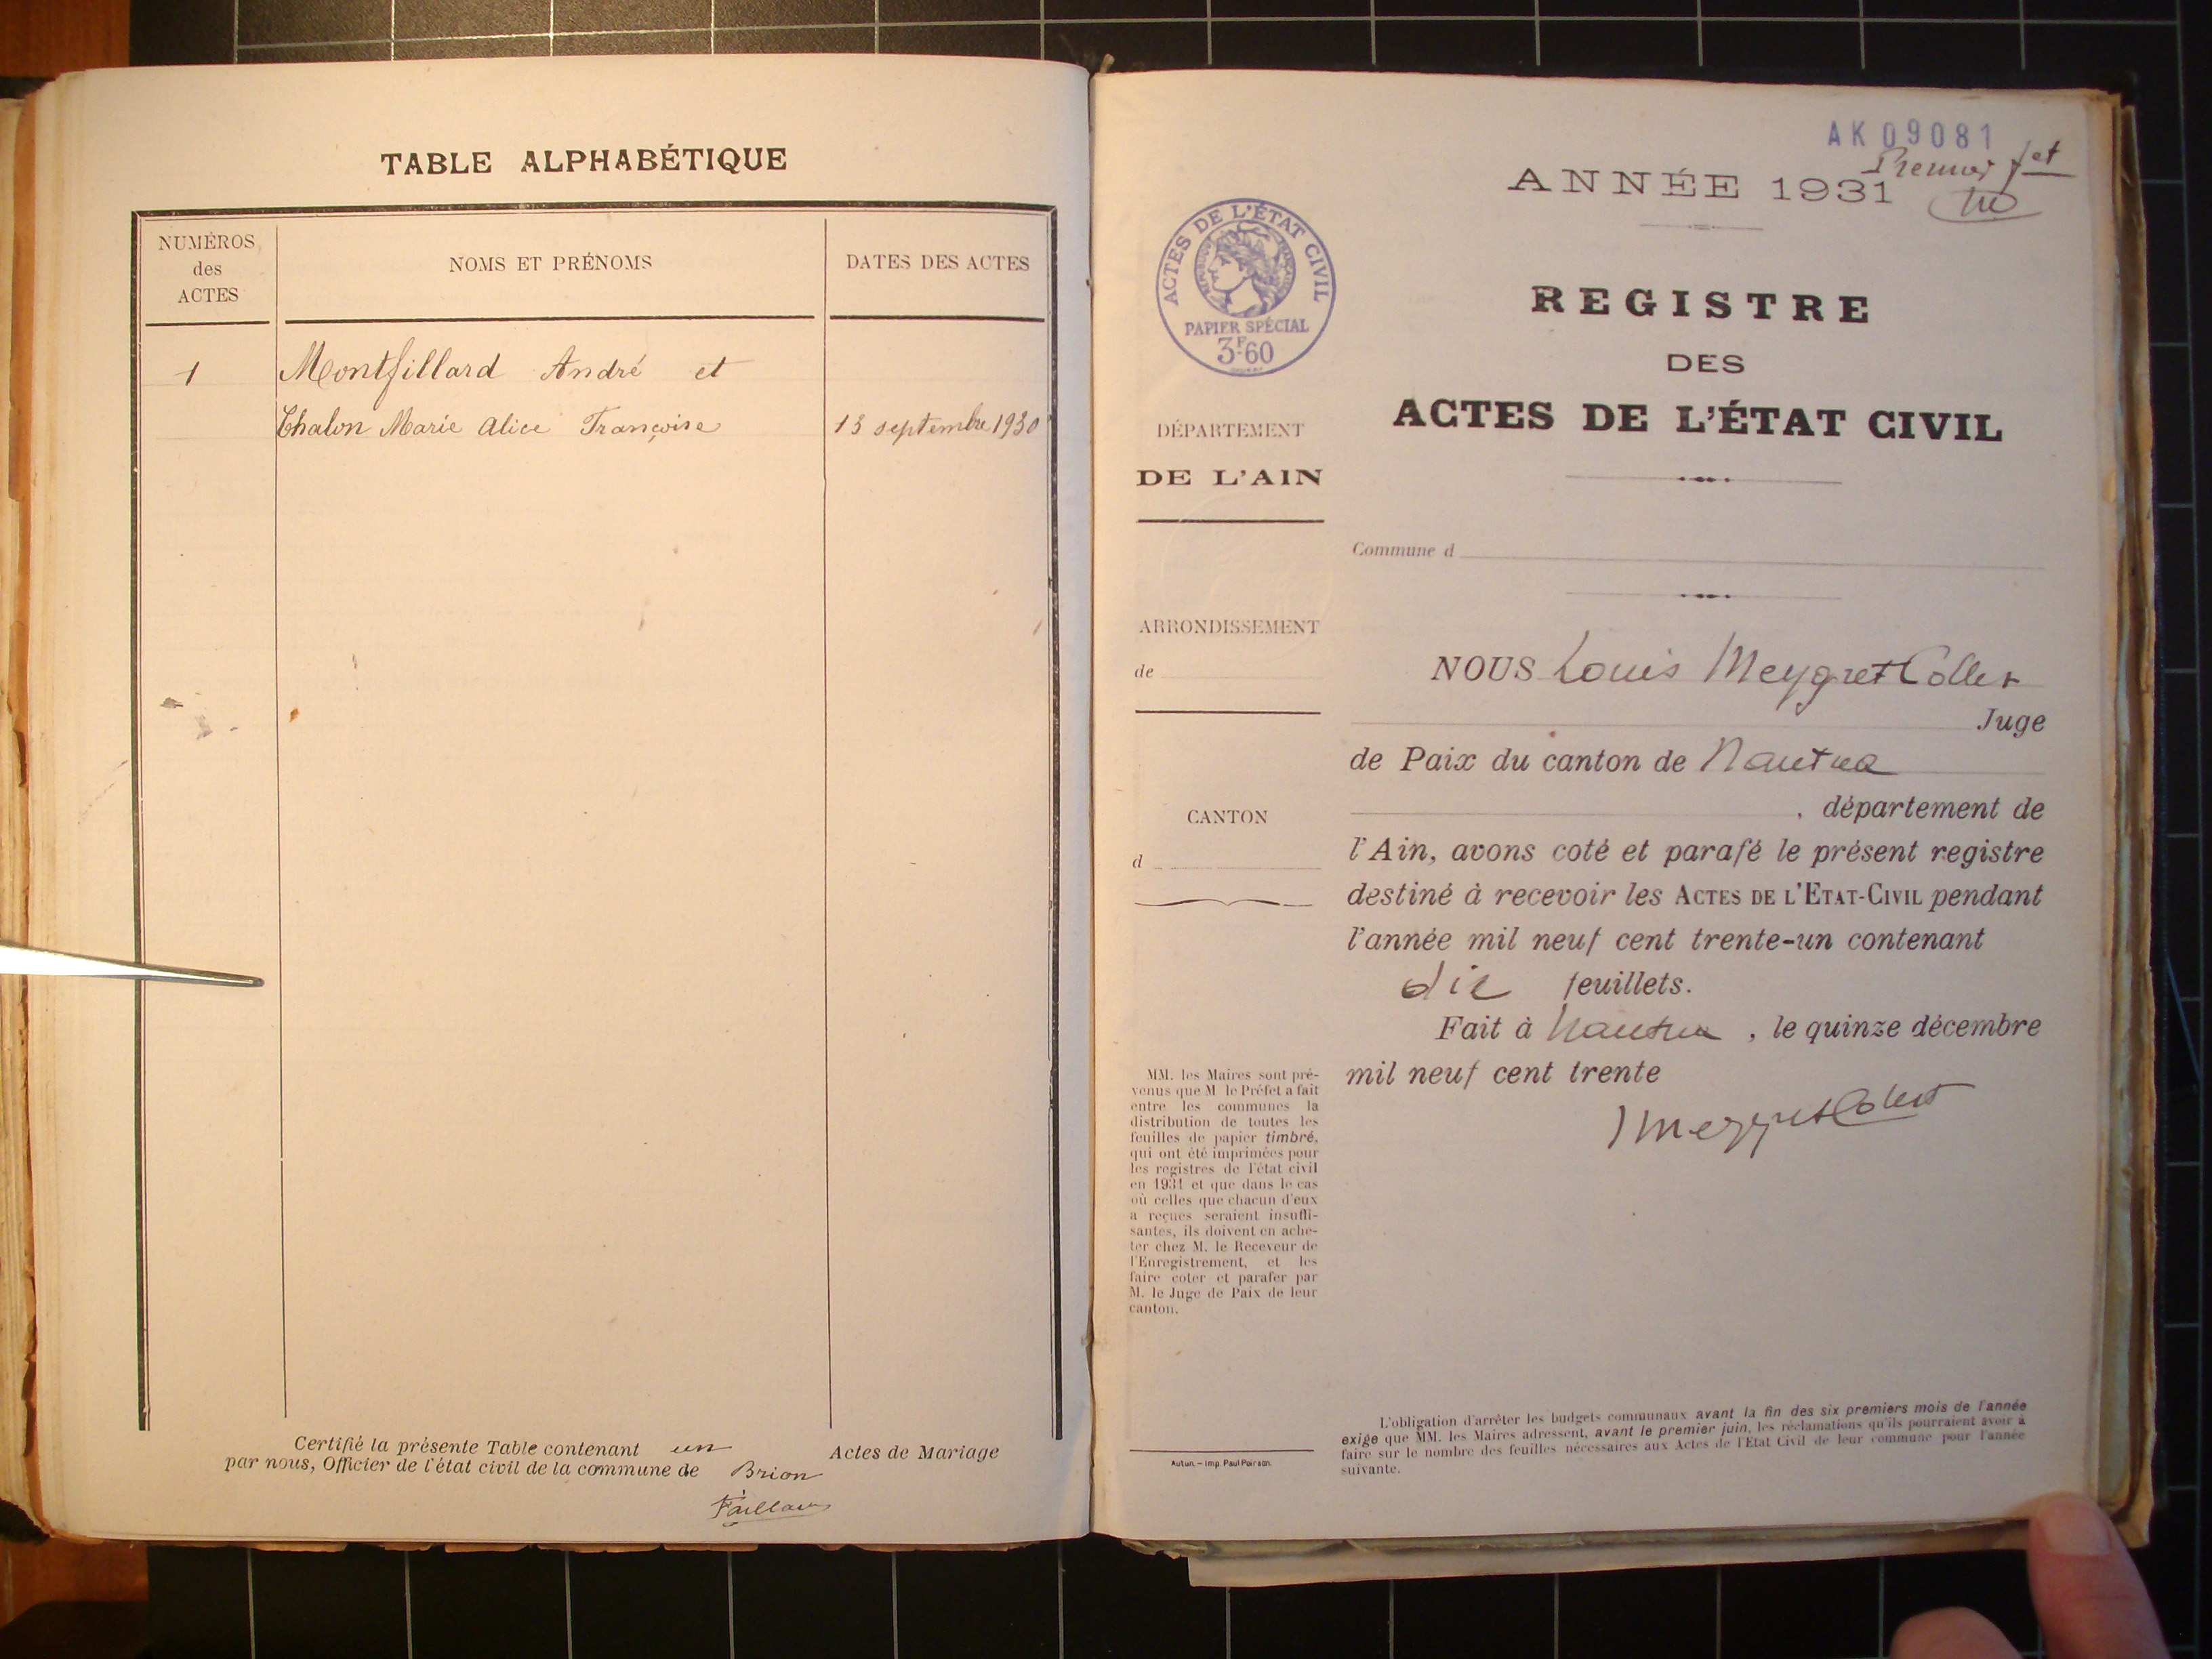 TABLE ALPHABÉTIQUE
NUMÉROS
des
ACTES
NOMS ET PRÉNOMS
DATES DES ACTES
1
Montfillard André et
Chalon Marie Alice Françoise
13 septembre 1930
Certifié la présente Table contenant un Actes de Mariage
par nous, Officier de l'état civil de la commune de Brion
AK 09081
Premier fet
ANNÉE 1931
ACTES DE L'ÉTAT CIVIL
RÉPUBLIQUE FRANÇAISE
PAPIER SPÉCIAL
3F.60
REGISTRE
DES
ACTES DE L'ÉTAT CIVIL
DÉPARTEMENT
DE L'AIN
Commune d
ARRONDISSEMENT
de
CANTON
d
NOUS Louis Meygret Collet
Juge
de Paix du canton de Nantua
, département de
l'Ain, avons coté et parafé le présent registre
destiné à recevoir les ACTES DE L'ETAT-CIVIL pendant
l'année mil neuf cent trente-un contenant
dix feuillets.
Fait à Nantua, le quinze décembre
mil neuf cent trente
MeygretCollet
MM. les Maires sont pré-
venus que M le Préfet a fait
entre les communes la
distribution de toutes les
feuilles de papier timbré,
qui ont été imprimées pour
les registres de l'état civil
en 1931 et que dans le cas
où celles que chacun d'eux
a reçues seraient insuffi-
santes, ils doivent en ache-
ter chez M. le Receveur de
l'Enregistrement, et les
faire coter et parafer par
M. le Juge de Paix de leur
canton.
Autun. – Imp. Paul Poirson.
L'obligation d'arrêter les budgets communaux avant la fin des six premiers mois de l'année
exige que MM. les Maires adressent, avant le premier juin, les réclamations qu'ils pourraient avoir à
faire sur le nombre des feuilles nécessaires aux Actes de l'Etat Civil de leur commune pour l'année
suivante.